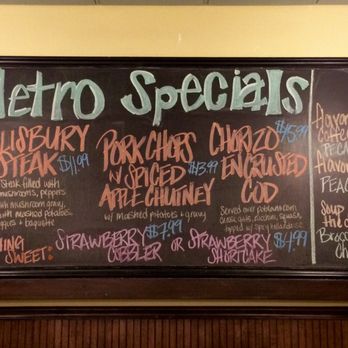 etro Specials
LISBURY
STEAK $11.99
Steak filled with
mushrooms, peppers
with mushroom gravy,
with mashed potatoes,
& baguette
PORK CHOPS
N SPICED $13.99
APPLE CHUTNEY
w/ mashed potatoes & gravy
CHORIZO $15.99
ENCRUSTED
COD
Served over
zucchini, squash,
topped w/ spicy
ING
SWEET:
STRAWBERRY $7.99
COBBLER OR STRAWBERRY
SHORTCAKE $4.99
Flavor
Coffee
PECA
Flavor
PEAC
Soup
the d
Broc
Ch